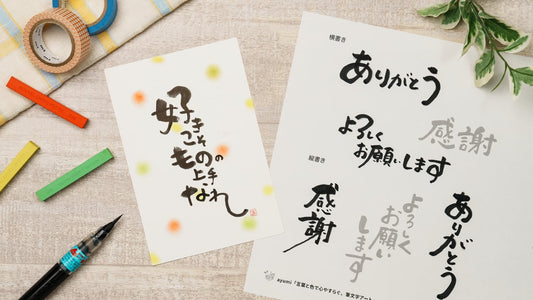 好き
こそ
ものの
上手
なれ
横書き
ありがとう
よろしく
お願いします
感謝
縦書き
感謝
よろしく
お願い
します
ありがとう
ayumi「言葉と色で心やすらぐ、筆文字アート